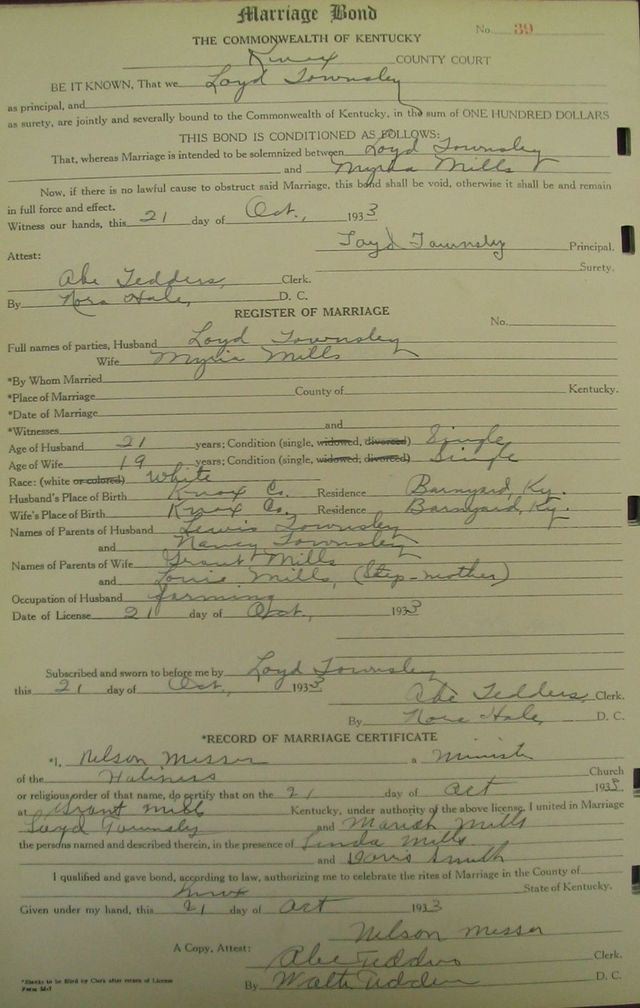 Marriage Bond
No. 39
THE COMMONWEALTH OF KENTUCKY
Knox COUNTY COURT
BE IT KNOWN, That we Loyd Townsley
as principal, and
as surety, are jointly and severally bound to the Commonwealth of Kentucky, in the sum of ONE HUNDRED DOLLARS
THIS BOND IS CONDITIONED AS FOLLOWS:
That, whereas Marriage is intended to be solemnized between Loyd Townsley
and Myria Mills
Now, if there is no lawful cause to obstruct said Marriage, this bond shall be void, otherwise it shall be and remain
in full force and effect.
Witness our hands, this 21 day of Oct, 1933
Loyd Townsley Principal.
Attest: Surety.
Abe Tedders, Clerk.
By Nora Hale, D. C.
REGISTER OF MARRIAGE
No.
Full names of parties, Husband Loyd Townsley
Wife Myria Mills
*By Whom Married
*Place of Marriage County of Kentucky.
*Date of Marriage
*Witnesses and
Age of Husband 21 years; Condition (single, widowed, divorced) Single
Age of Wife 19 years; Condition (single, widowed, divorced) Single
Race: (white or colored) White
Husband's Place of Birth Knox Co. Residence Barnyard, Ky.
Wife's Place of Birth Knox Co. Residence Barnyard, Ky.
Names of Parents of Husband Lewis Townsley
and Nancy Townsley
Names of Parents of Wife Grant Mills
and Louie Mills, (Step-mother)
Occupation of Husband farming
Date of License 21 day of Oct, 1933
Subscribed and sworn to before me by Loyd Townsley
this 21 day of Oct, 1933
Abe Tedders, Clerk.
By Nora Hale, D. C.
*RECORD OF MARRIAGE CERTIFICATE
*I, Nelson Messer a Minister
of the Holiness Church
or religious order of that name, do certify that on the 21 day of Oct 1933
at Grant Mills Kentucky, under authority of the above license, I united in Marriage
Loyd Townsley and Mariah Mills
the persons named and described therein, in the presence of Linda Mills
and Smith
I qualified and gave bond, according to law, authorizing me to celebrate the rites of Marriage in the County of
Knox State of Kentucky.
Given under my hand, this 21 day of Oct 1933
Nelson Messer
A Copy, Attest: Abe Tedders Clerk.
By Tedders D. C.
*Blanks to be filled by Clerk after return of License